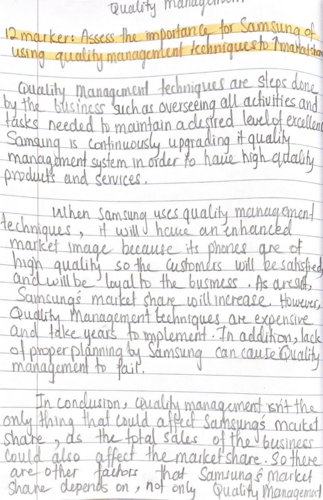 Quality Management
12 marker: Assess the importance for Samsung of
using quality management techniques to ↑ market share
Quality Management techniques are steps done
by the business such as overseeing all activities and
tasks needed to maintain a desired level of excellen
Samsung is continuously upgrading it quality
management system in order to have high quality
products and services.
When Samsung uses quality management
techniques, it will have an enhanced
market image because its phones are of
high quality so the customers will be satisfied
and will be loyal to the business. As a result,
Samsung's market share will increase. However,
Quality Management techniques are expensive
and take years to implement. In addition, lack
of proper planning by Samsung can cause Quality
management to fail.
In conclusion, Quality management isn't the
only thing that could affect Samsung's market
share, as the total sales of the business
could also affect the market share. So there
are other factors that Samsung's market
share depends on, not only Quality Management